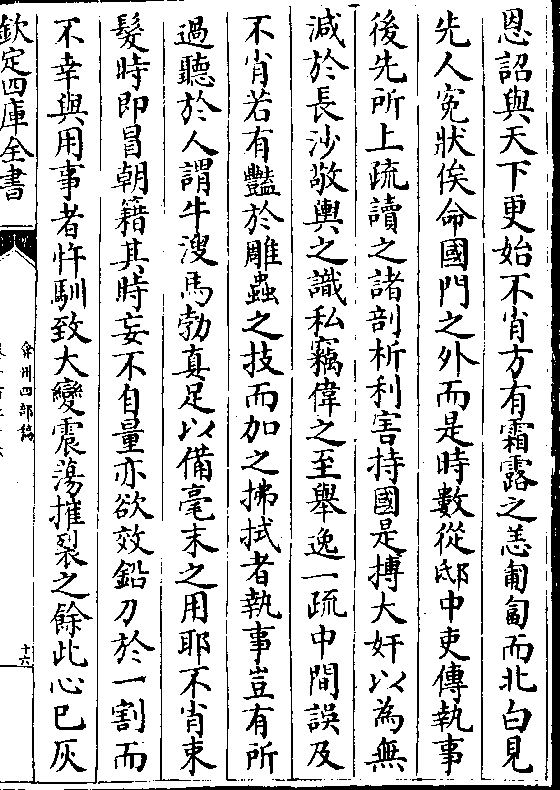 恩詔與天下更始不肖方有霜露之恙匍匐而北白見
先人寃狀俟命國門之外而是時數從邸中吏傳執事
後先所上疏讀之諸剖析利害持國是搏大奸以為無
減於長沙敬輿之識私竊偉之至舉逸一疏中間誤及
不肖若有豔於雕蟲之技而加之拂拭者執事豈有所
過聽於人謂牛溲馬勃真足以備毫末之用耶不肖束
髮時即冒朝籍其時妄不自量亦欲效鉛刀於一割而
不幸與用事者忤馴致大變震蕩摧裂之餘此心已灰
欽定四庫全書
弇州四部稿
十六